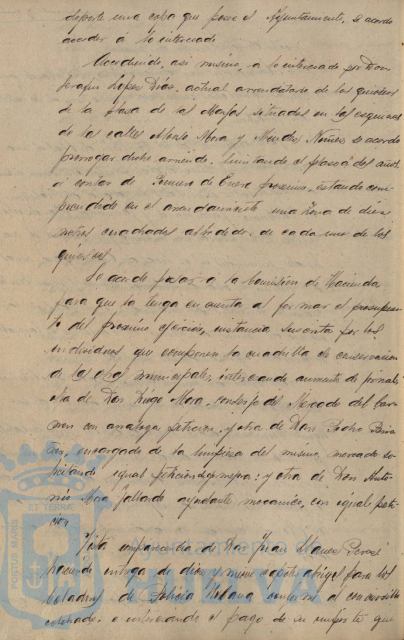 deporte una copa que posee el Ayuntamiento, se acordó
acceder á lo interesado
Accediendo, asi mismo, a lo interesado por Don
Serafin Lopez Dias, actual arrendatario de los quioscos
de la plaza de las Monjas situados en las esquinas
de las calles Alonso Mora y Mendez Nuñez se acordo
prorrogar dicho arriendo, limitando el plazo á dos años
á contar de Primero de Enero proximo, estando com-
prendido en el arrendamiento una zona de dies
metros cuadrados alrededor de cada uno de los
quioscos
Se acordo pasar a la Comision de Hacienda
para que la tenga en cuenta al formar el presupues-
to del proximo ejercicio, instancia suscrita por los
individuos que componen la cuadrilla de conservacion
de las municipales, interesando aumento de jornal;
otra de Don Diego Mora, conserje del Mercado del Car-
men con analoga peticion; y otra de Don Pedro
encargado de la limpieza del mismo mercado so-
licitando igual y otra de Don Anto-
nio ayudante mecanico, con igual peti-
cion
Vista comparecencia de Don Juan Perez
haciendo entrega de dies y nueve capotes abrigos para los
de Policia Urbana conforme al concursillo
celebrado e interesando el pago de su importe que
PORTUS MARIS ET TERRÆ
Ayuntamiento de
HUELVA